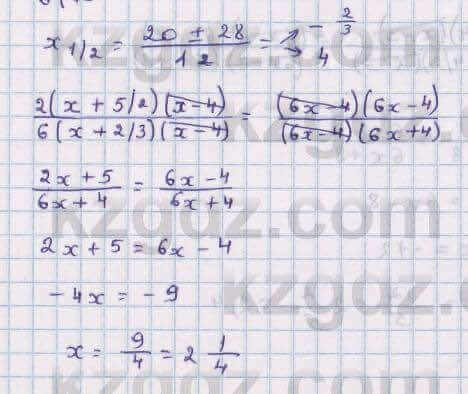 x 1/2 = (20 ± 28)/12 = ↗ -2/3 ↘ 4
(2(x + 5/2)(x - 4))/(6(x + 2/3)(x - 4)) = ((6x - 4)(6x - 4))/((6x - 4)(6x + 4))
(2x + 5)/(6x + 4) = (6x - 4)/(6x + 4)
2x + 5 = 6x - 4
-4x = -9
x = 9/4 = 2 1/4
kzgdz.com